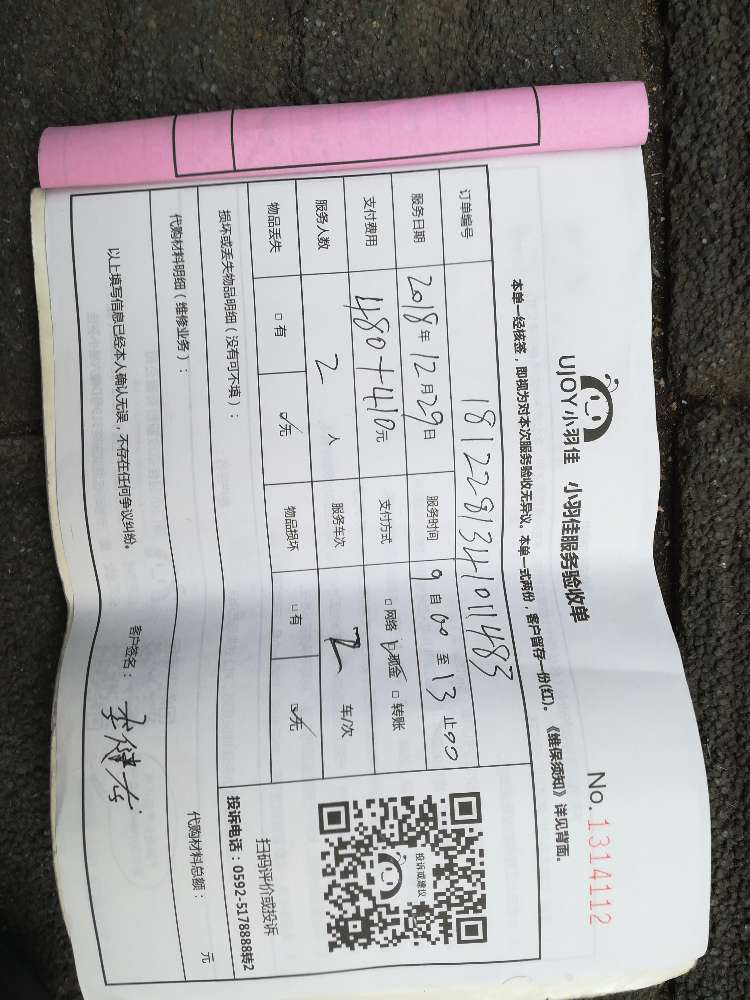 UJOY小羽佳 小羽佳服务验收单
No. 1314112
本单一经核签,即视为对本次服务验收无异议。本单一式两份,客户留存一份(红)。《维保须知》详见背面。
订单编号 1812281341011483
服务日期 2018年12月29日 服务时间 9自00至13止00
支付费用 480+410元 支付方式 □网络 ☑现金 □转账
服务人数 2 人 服务车次 2 车/次
物品丢失 □有 ☑无 物品损坏 □有 ☑无
损坏或丢失物品明细(没有可不填):
投诉或建议
扫码评价或投诉
投诉电话:0592-5178888转2
代购材料明细(维修业务): 代购材料总额: 元
以上填写信息已经本人确认无误,不存在任何争议纠纷。 客户签名: